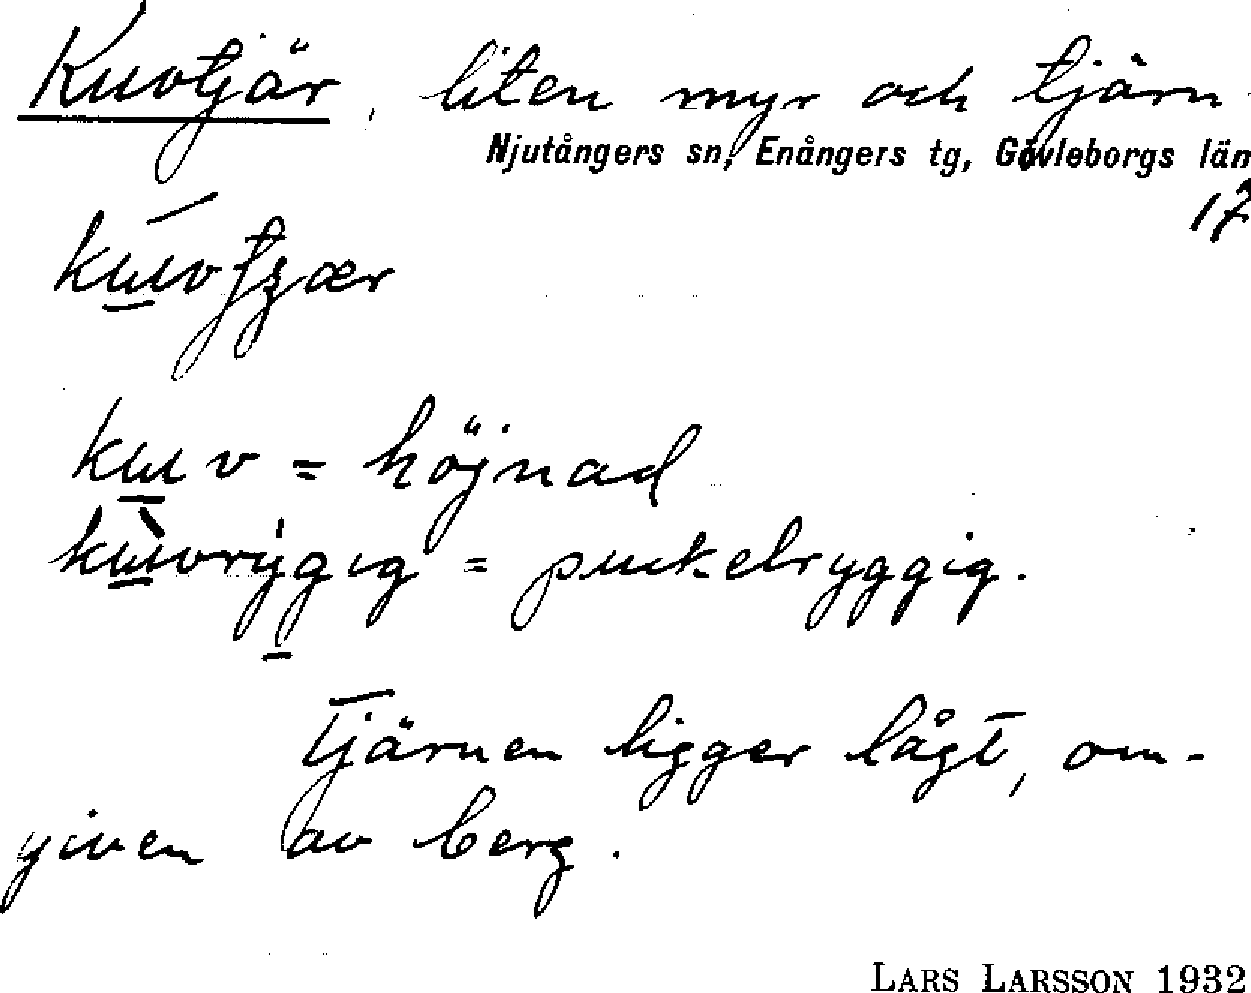 Kuvtjär, liten myr och tjärn
Njutångers sn, Enångers tg, Gävleborgs län
17
kuvtʒær
kuv = höjnad
kùvrýgig = puckelryggig.
Tjärnen ligger lågt, om-
given av berg.
LARS LARSSON 1932